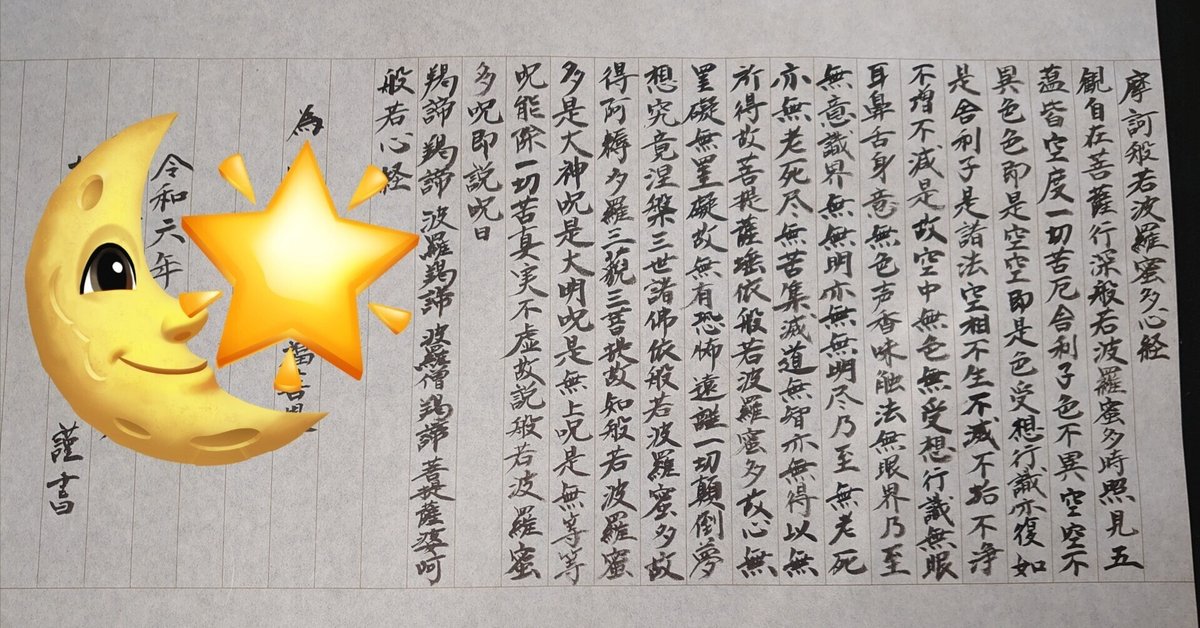 摩訶般若波羅蜜多心経
観自在菩薩行深般若波羅蜜多時照見五
蘊皆空度一切苦厄舎利子色不異空空不
異色色即是空空即是色受想行識亦復如
是舎利子是諸法空相不生不滅不垢不浄
不増不減是故空中無色無受想行識無眼
耳鼻舌身意無色声香味触法無眼界乃至
無意識界無無明亦無無明尽乃至無老死
亦無老死尽無苦集滅道無智亦無得以無
所得故菩提薩埵依般若波羅蜜多故心無
罣礙無罣礙故無有恐怖遠離一切顛倒夢
想究竟涅槃三世諸佛依般若波羅蜜多故
得阿耨多羅三藐三菩提故知般若波羅蜜
多是大神呪是大明呪是無上呪是無等等
呪能除一切苦真実不虚故説般若波羅蜜
多呪即説呪曰
羯諦羯諦波羅羯諦波羅僧羯諦菩提薩婆呵
般若心経
為
令和六年
謹書